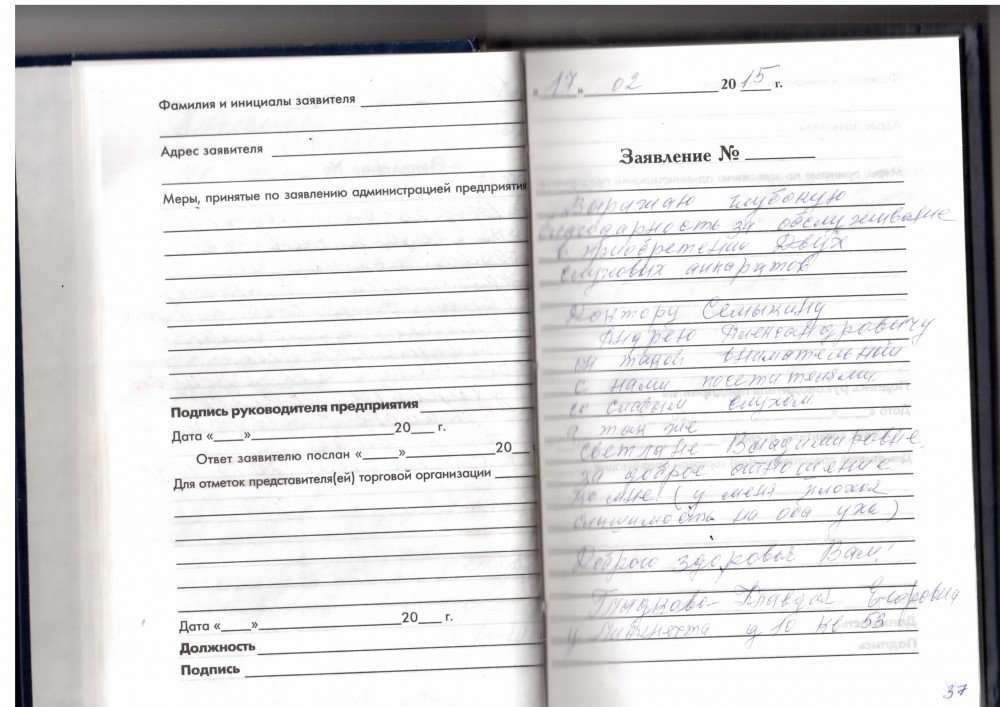 Фамилия и инициалы заявителя
Адрес заявителя
Меры, принятые по заявлению администрацией предприятия
Подпись руководителя предприятия
Дата «____»____20__ г.
Ответ заявителю послан «____»____20__
Для отметок представителя(ей) торговой организации
Дата «____»____20__ г.
Должность
Подпись
«17» 02 2015 г.
Заявление №
Выражаю глубокую
благодарность за обслуживание
в приобретении Двух
слуховых аппаратов
Доктору Семыкину
Андрею Александровичу
он такой внимательный
с нами посетителями
со слабым слухом
а так же
Светлане Владимировне
за доброе отношение
ко мне (у меня плохая
слышимость на оба уха)
Доброго здоровья Вам!
Клавдия Егоровна
д 10 кв 53
37